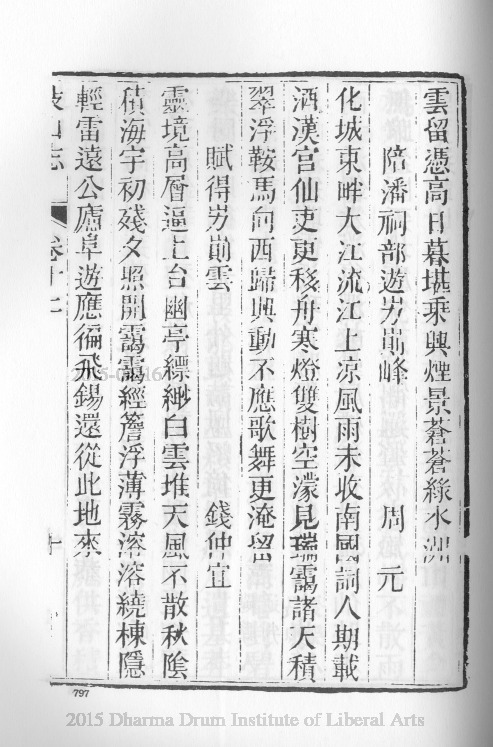 雲留憑高日暮堪乘興煙景蒼蒼綠水洲
陪潘祠部遊岃崱峰　周　元
化城東畔大江流江上凉風雨未收南國詞人期載
酒漢宫仙吏更移舟寒燈雙樹空濛見瑞靄諸天積
翠浮鞍馬向西歸興動不應歌舞更淹留
賦得岃崱雲　錢仲宜
靈境高層逼上台幽亭縹緲白雲堆天風不散秋陰
積海宇初殘夕照開靄靄經簷浮薄霧溶溶繞棟隱
輕雷遠公廬阜遊應徧飛錫還從此地來
山志　卷十二
797
2015 Dharma Drum Institute of Liberal Arts